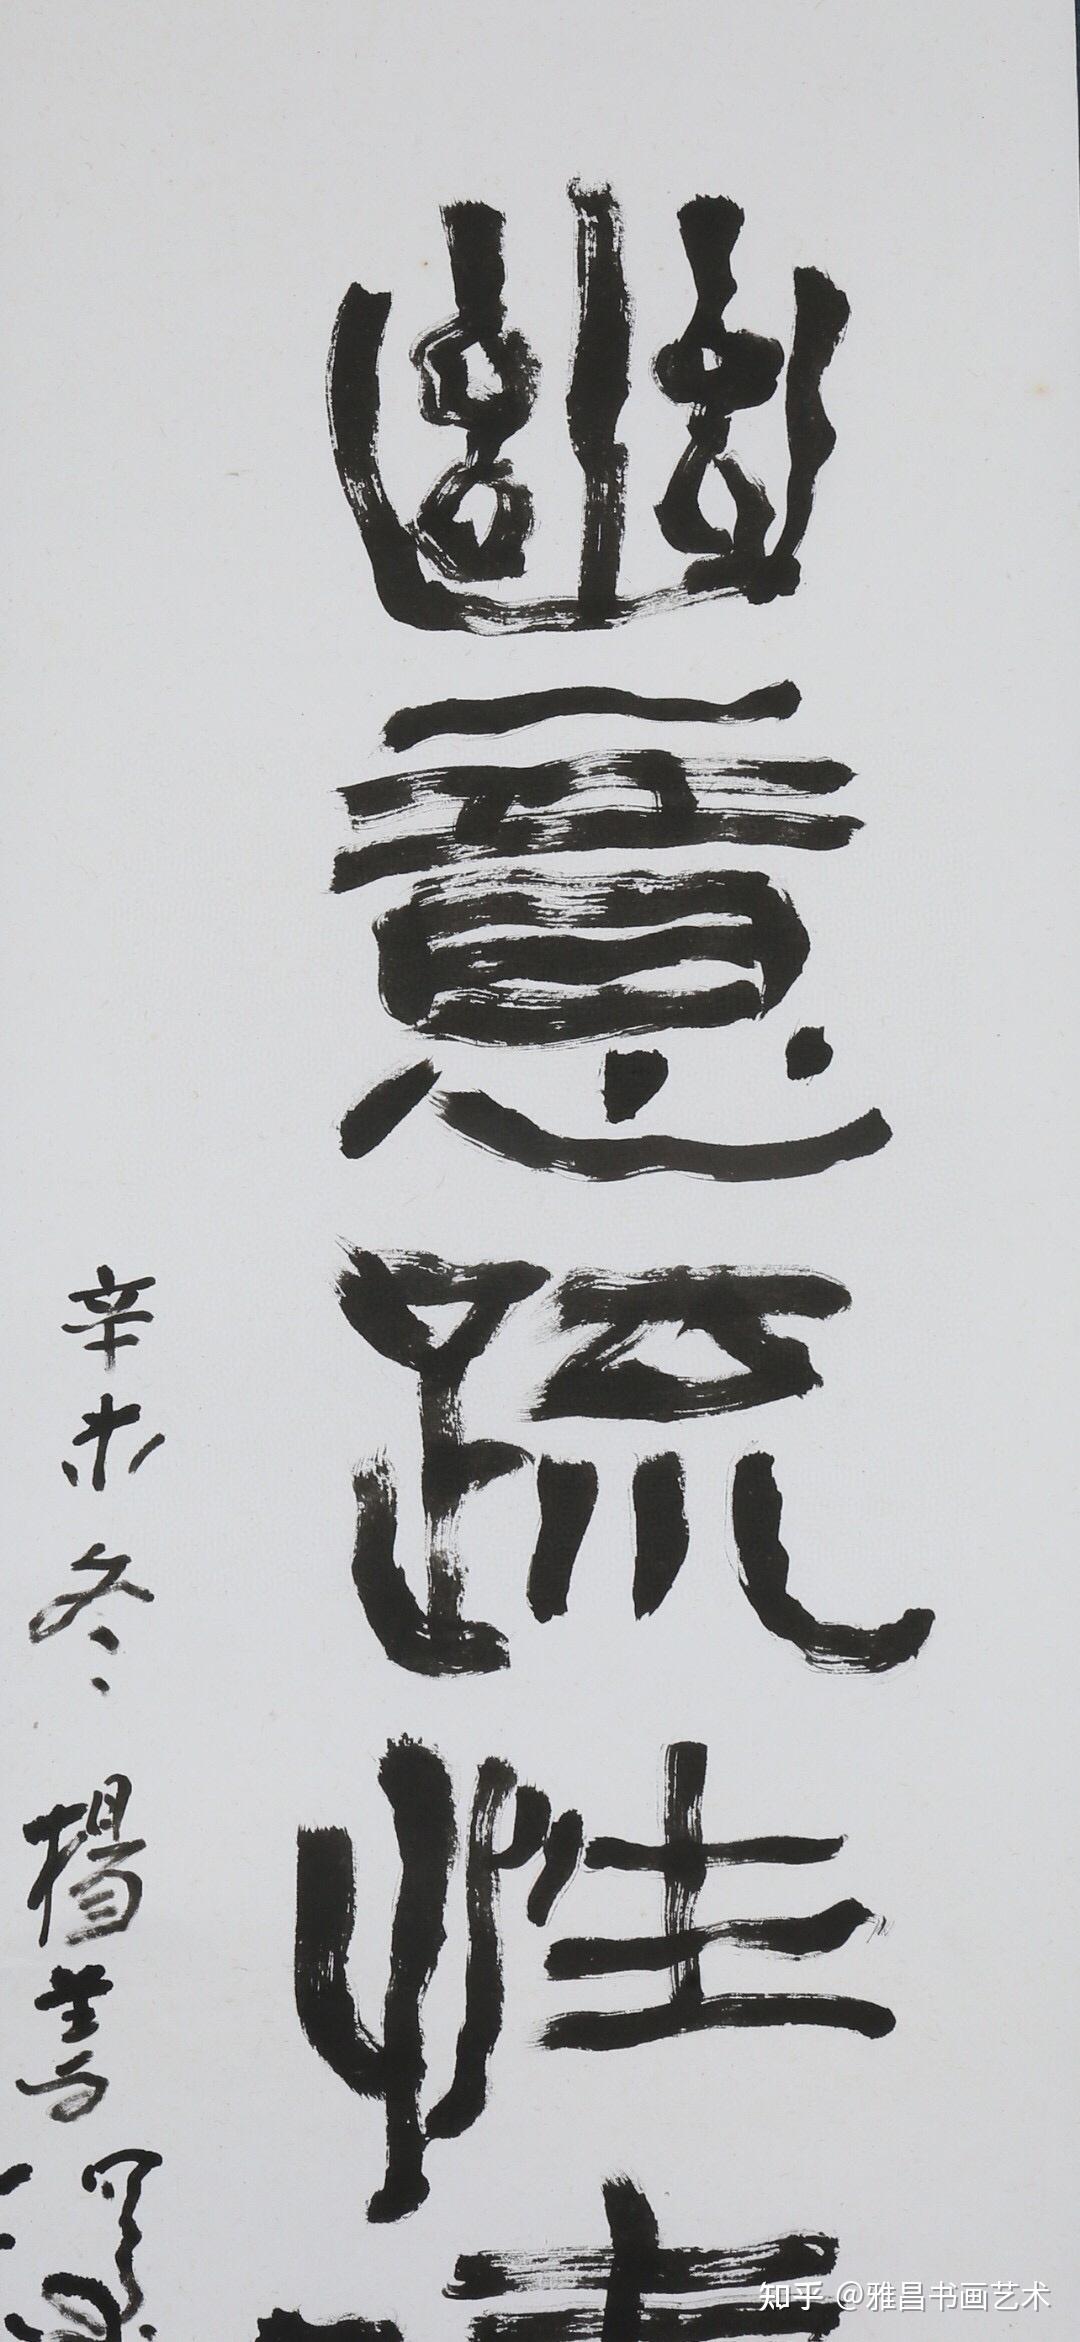 幽意疏性
辛未冬 楊善
知乎 @雅昌书画艺术